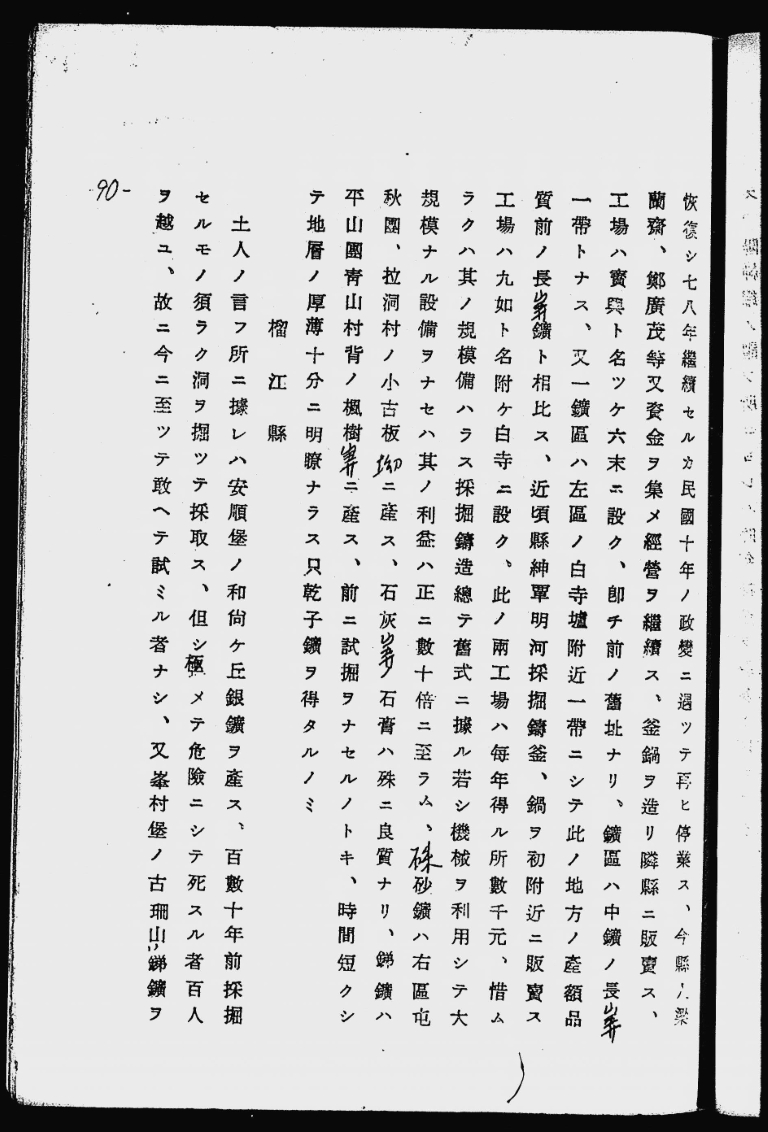 恢復シ七八年繼續セルカ民國十年ノ政變ニ遇ツテ再ヒ停業ス、今縣人梁
蘭齋、鄭廣茂等又資金ヲ集メ經營ヲ繼續ス、釜鍋ヲ造リ隣縣ニ販賣ス、
工場ハ寳興ト名ツケ六末ニ設ク、卽チ前ノ舊址ナリ、鑛區ハ中鑛ノ長
一帶トナス、又一鑛區ハ左區ノ白寺墟附近一帶ニシテ此ノ地方ノ產額品
質前ノ長鑛ト相比ス、近頃縣紳覃明河採掘鑄釜、鍋ヲ初附近ニ販賣ス
工場ハ九如ト名附ケ白寺ニ設ク、此ノ兩工場ハ每年得ル所數千元、惜ム
ラクハ其ノ規模備ハラス採掘鑄造總テ舊式ニ據ル若シ機械ヲ利用シテ大
規模ナル設備ヲナセハ其ノ利益ハ正ニ數十倍ニ至ラム、硃砂鑛ハ右區屯
秋團、拉洞村ノ小古板坳ニ產ス、石灰石膏ハ殊ニ良質ナリ、銻鑛ハ
平山團靑山村背ノ楓樹ニ產ス、前ニ試掘ヲナセルノトキ、時間短クシ
テ地層ノ厚薄十分ニ明瞭ナラス只乾子鑛ヲ得タルノミ
榴江縣
土人ノ言フ所ニ據レハ安順堡ノ和尙ケ丘銀鑛ヲ產ス、百數十年前採掘
セルモノ須ラク洞ヲ掘ツテ採取ス、但シ極メテ危險ニシテ死スル者百人
ヲ越ユ、故ニ今ニ至ツテ敢ヘテ試ミル者ナシ、又峯村堡ノ古珊山銻鑛ヲ
90-